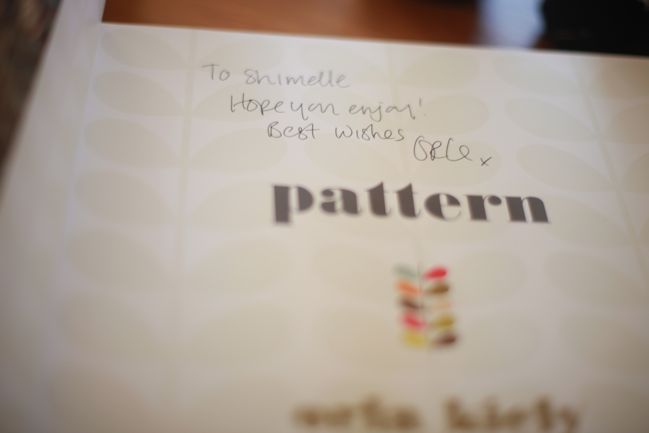 To Shimelle
Hope you enjoy!
Best Wishes Orla x
pattern
orla kiely